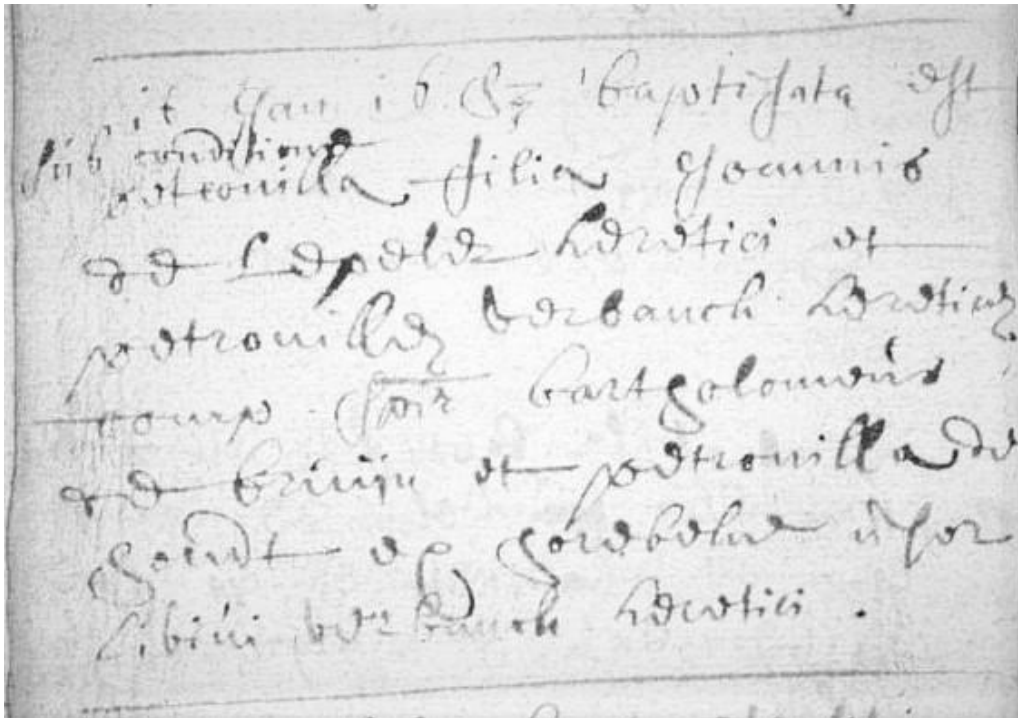 baptisata est
sub conditione
petronilla filia Joannis
de Lepeler heretici et
petronillae verbauch hereticae
comp bartholomeus
de bruijn et petronilla de
ex horebeke uxor
Libini verbauch heretici .